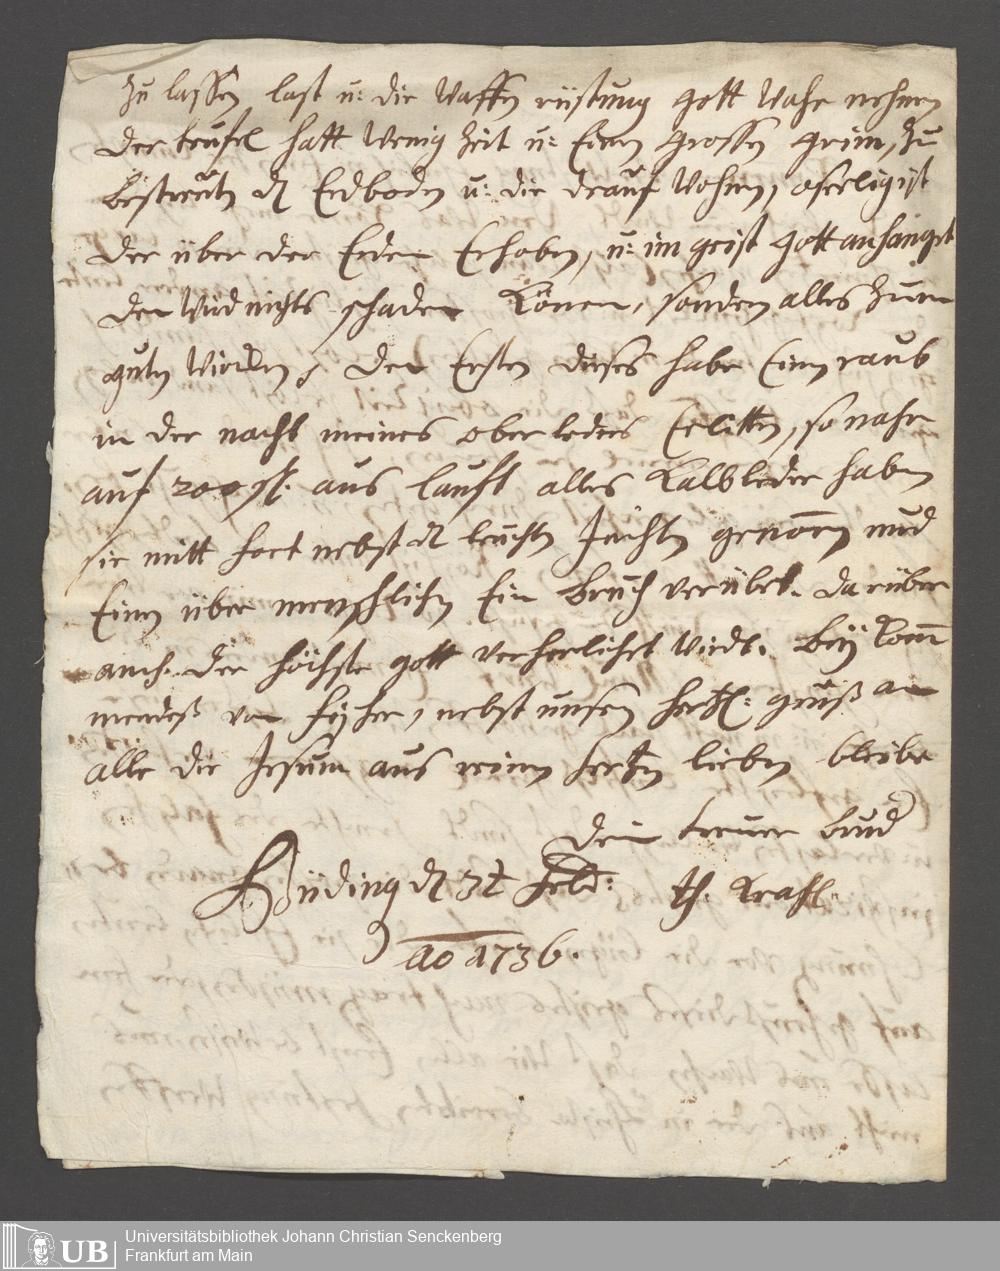 zu lassen, last u: die Waffen rüstung gott Wahr nehmen
der teufel hatt Wenig Zeit u: Einen grossen grim, zu
bestreuten d Erdboden u: die drauf Wohnen, o seelig ist
der über der Erden Erhoben, u: im geist gott anhänget
den Wird nichts schaden Können, sonden alles zum
guten Wirken, den Ersten dieses habe Einen raub
in der nacht meines oberleders Erlitten, so nahe
auf 200 fl. aus lauft alles Kalbleder haben
sie mitt fort nebst d leuchten Juchten genomen und
Einen über menschlichen Ein bruch verübet. darüber
auch der höchste gott verherlichet Wirdt. bey Kom
mendeß von hier, nebst unsern hertzl: gruß an
alle die Jesum aus reinen hertzen lieben bleibe
dein treuer brud
Büding d 3t feb: th: Krahl.
ao 1736.
Universitätsbibliothek Johann Christian Senckenberg
Frankfurt am Main
UB